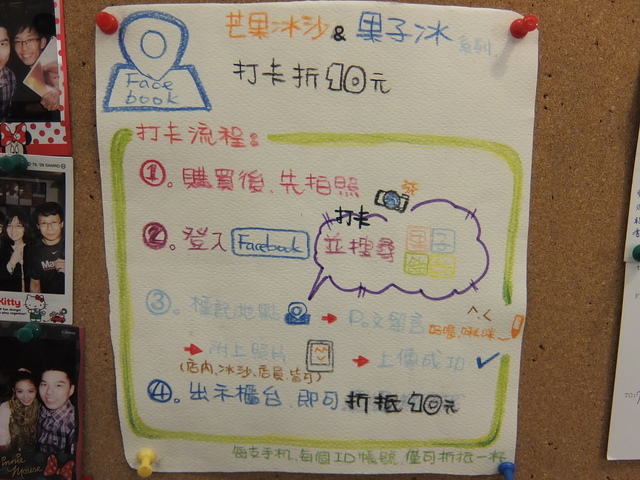 芒果冰沙 & 果子冰 系列
Face book
打卡折10元
打卡流程:
①。購買後、先拍照
②。登入 Facebook 打卡 並搜尋 果子
③。標記地點 → Po文留言
→ 附上照片 → 上傳成功 ✓
(店內、冰沙、店員 皆可)
④。出示櫃台、即可 折抵10元
每支手机、每個ID帳號、僅可折抵一杯
Kitty
Minnie Mouse